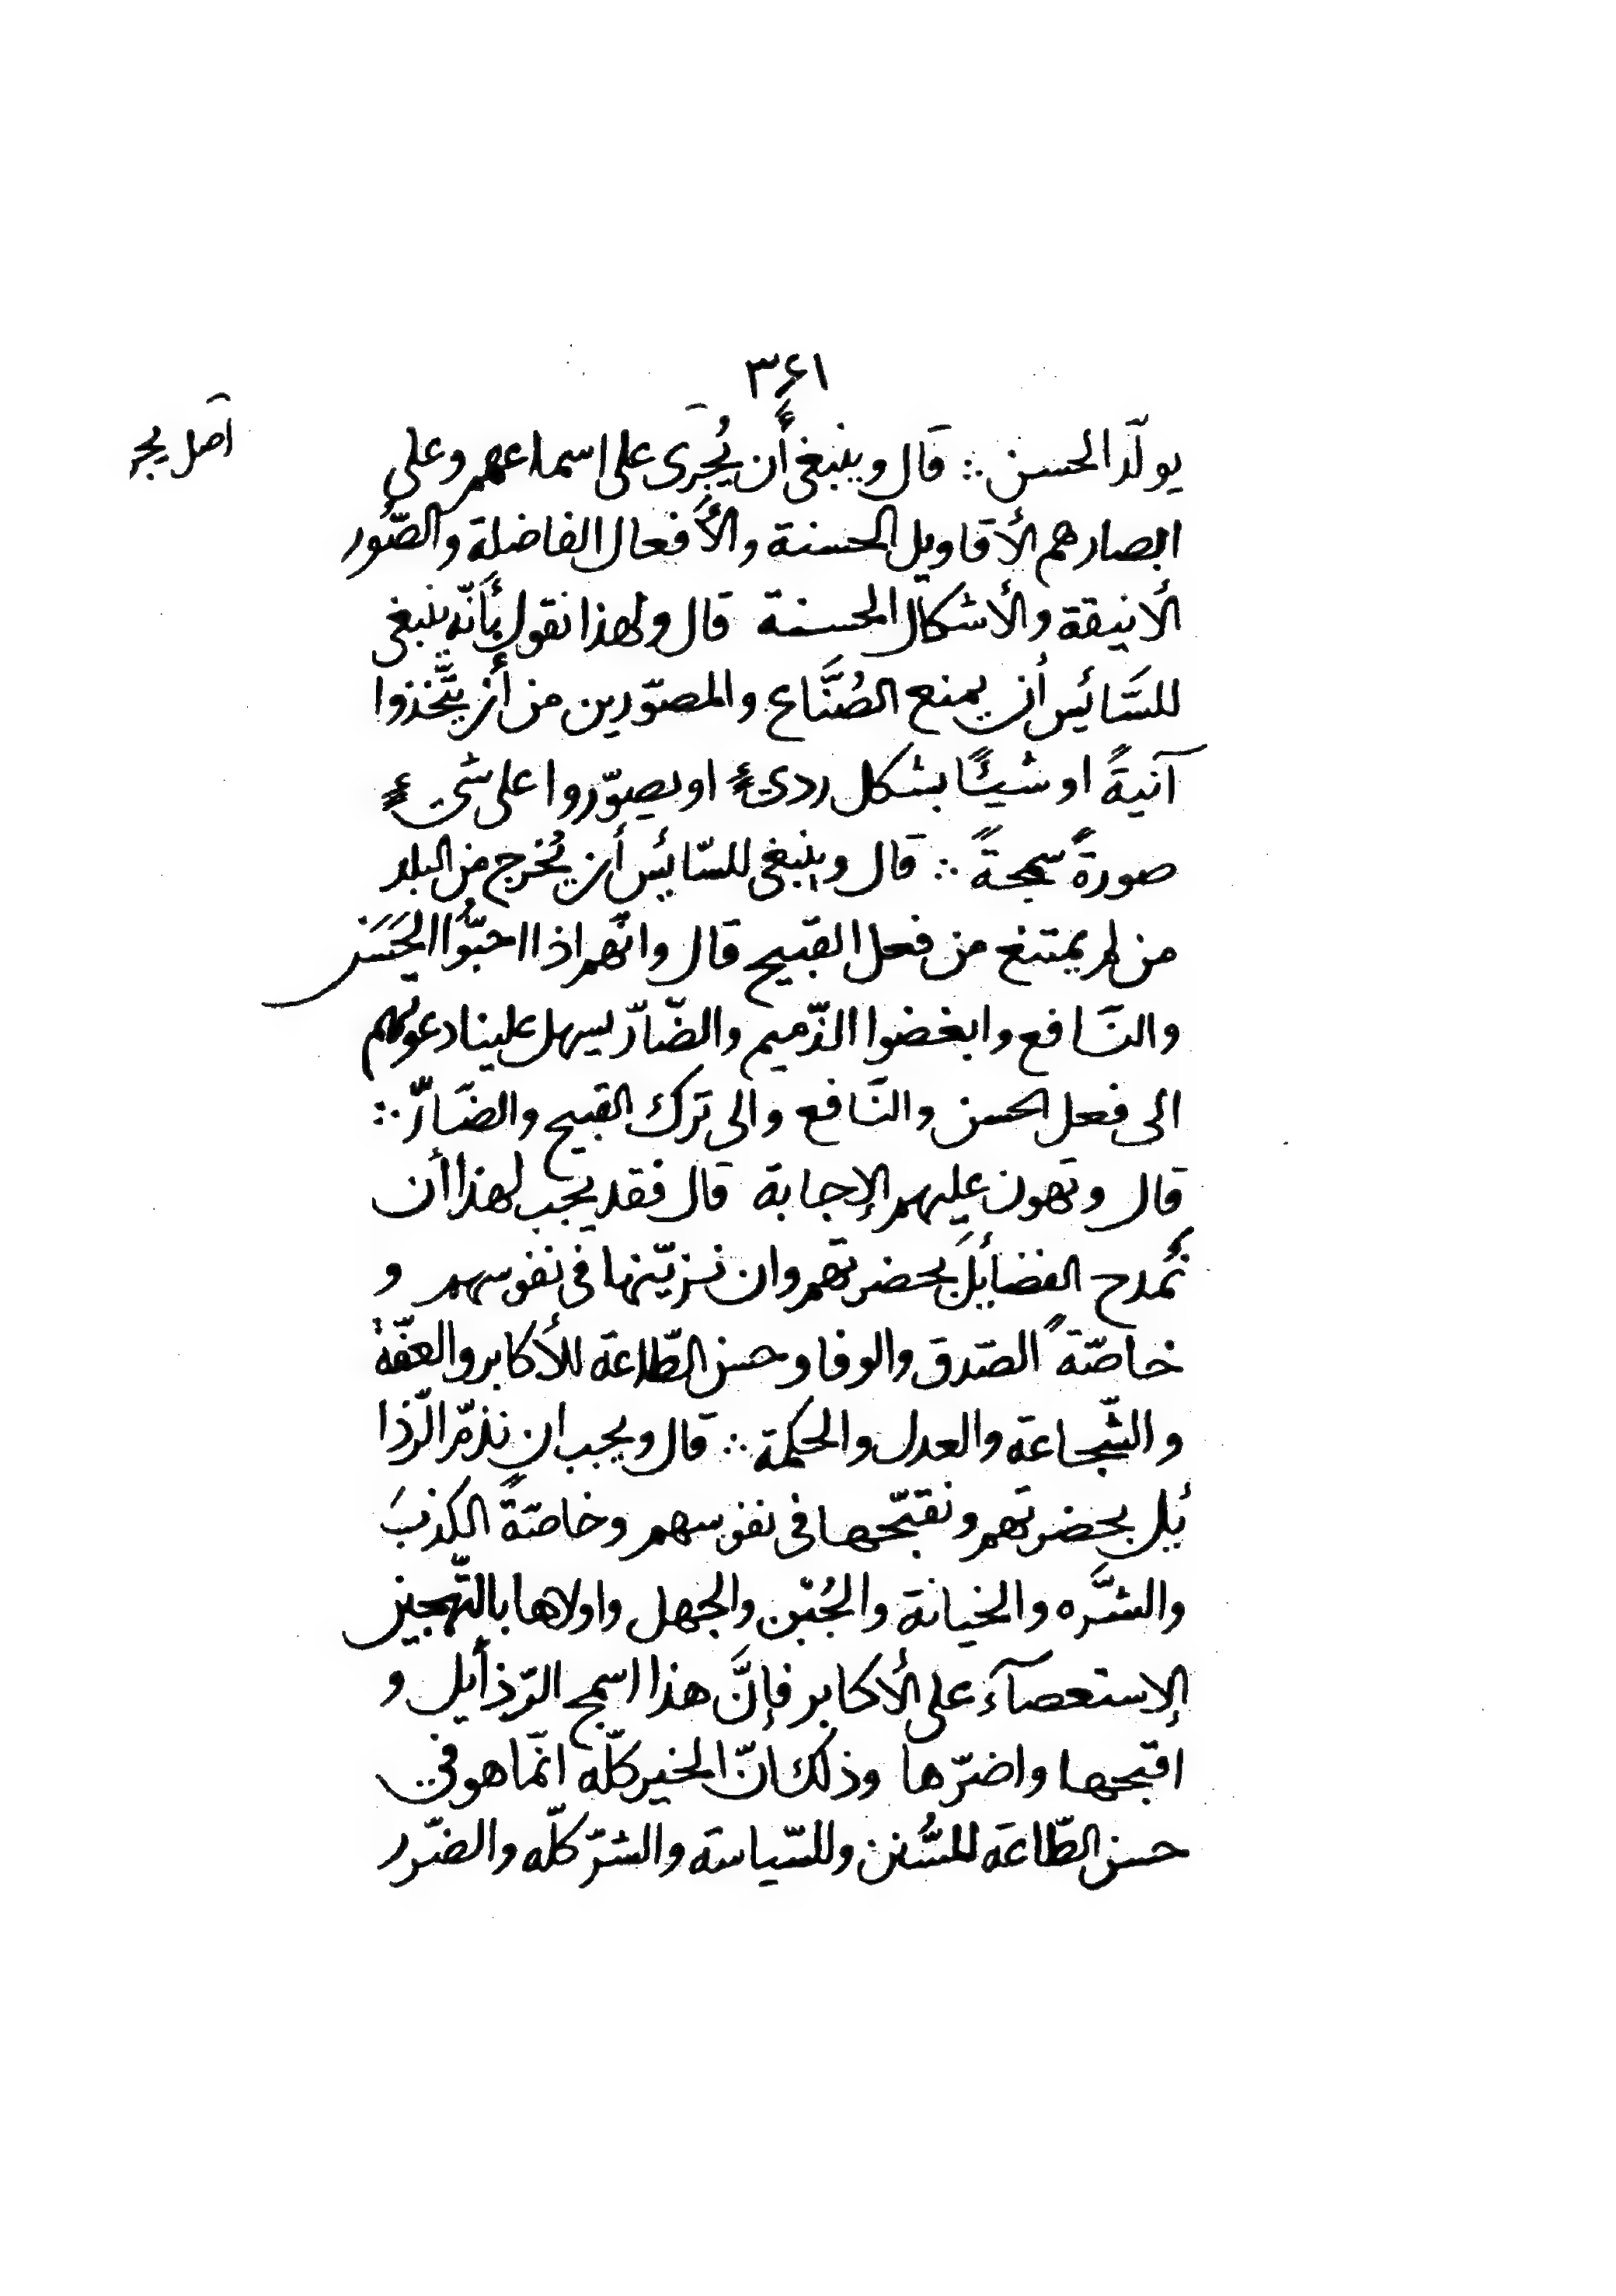 ۳۶۱
يولّد الحسن ∴ قال وينبغى أن يُجرى على اسماعهم وعلى
أصل يجر
ابصارهم الأقاويل الحسنة والأفعال الفاضلة والصُّور
الأنيقة والأشكال الحسنة قال ولهذا نقول بأنّه ينبغى
للسَّائس أن يمنع الصُنَّاع والمصوّرين من أن يتَّخذوا
آنيةً او شيئًا بشكل ردىءٍ او يصوّروا على شىءٍ
صورةً سمجةً ∴ قال وينبغى للسّائس أن يُخرج من البلد
من لم يمتنع من فعل القبيح قال وانّهم اذا احبُّوا الحَسَن
والنَّافع وابغضوا الذّميم والضّارّ يسهل علينا دعوتهم
الى فعل الحسن والنَّافع والى ترك القبيح والضَّارّ ∴
قال وتهون عليهم الإجابة قال فقد يجب لهذا أن
نُمدح الفضائلَ بحضرتهم وان نزيّنها فى نفوسهم و
خاصّةً الصّدق والوفا وحسن الطّاعة للأكابر والعفّة
والشّجاعة والعدل والحكمة ∴ قال ويجب ان نذمّ الرّذا
ئل بحضرتهم ونقبّحها فى نفوسهم وخاصّةً الكذبَ
والشَّره والخيانة والجُبن والجهل واولاها بالتّهجين
الإستعصآء على الأكابر فإنَّ هذا اسمج الرّذائل و
اقبحها واضرّها وذلك انّ الخير كلّه انّما هو فى
حسن الطّاعة للسُّنن وللسّياسة والشرّ كلّه والضّرر